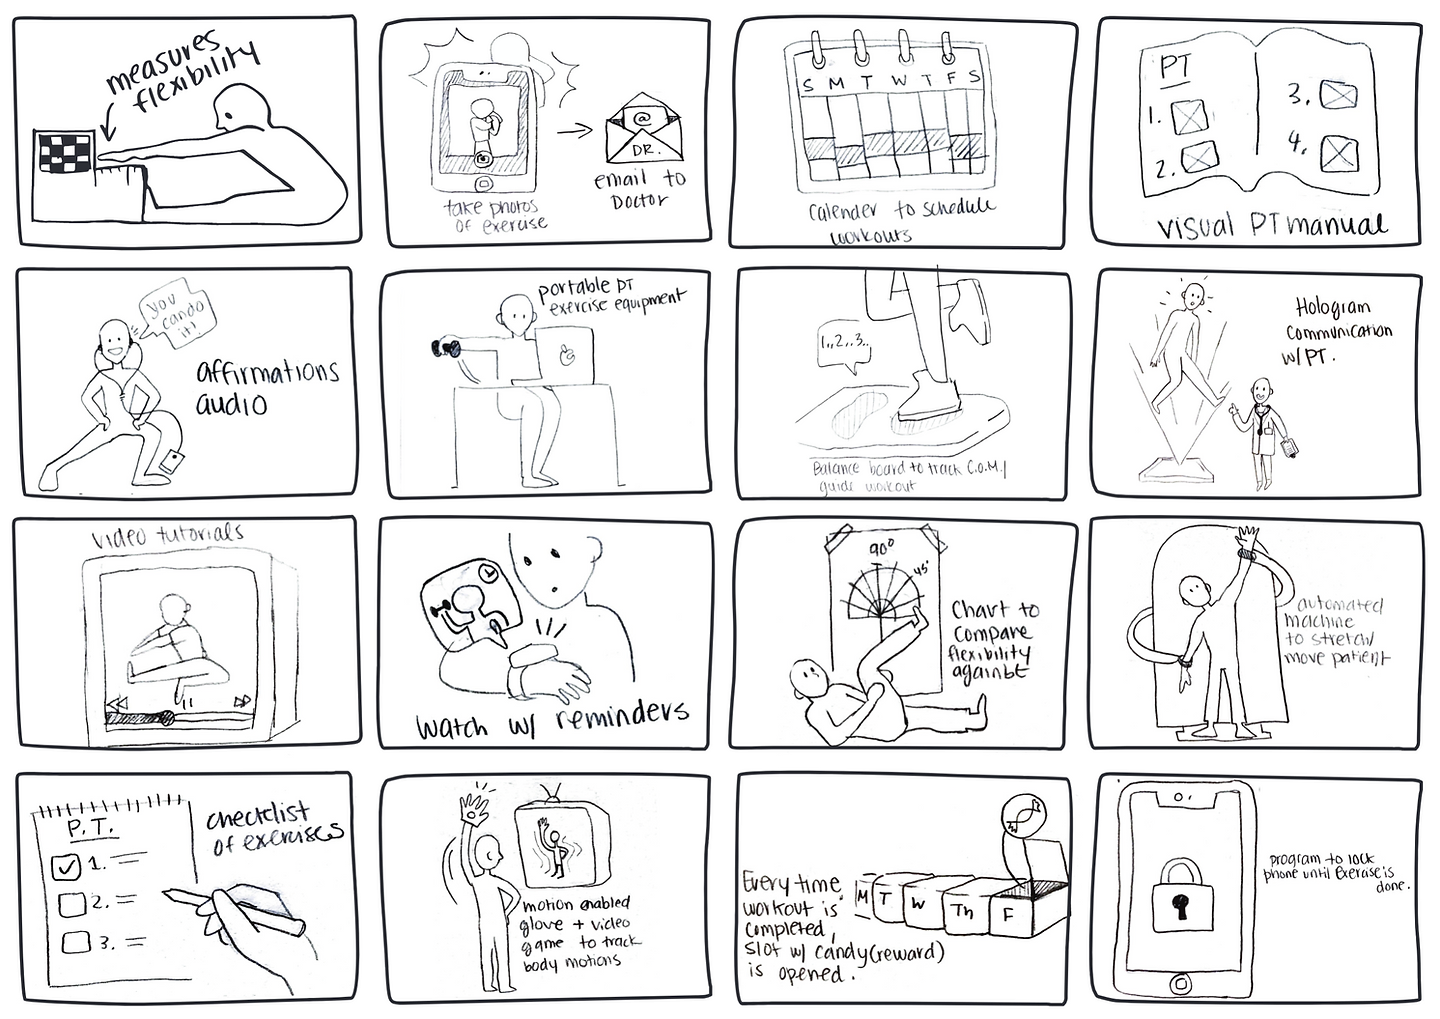 measures
flexibility
@
DR.
take photos
of exercise
email to
Doctor
S M T W T F S
Calender to schedule
workouts
PT
1.
2.
3.
4.
visual PT manual
you
can do
it!
affirmations
audio
portable PT
exercise equipment
1..,2..,3..
Balance board to track C.O.M./
guide workout
Hologram
communication
w/PT.
video tutorials
watch w/ reminders
90°
45°
Chart to
compare
flexibility
against
automated
machine
to stretch/
move patient
P.T.
1.
2.
3.
checklist
of exercises
motion enabled
glove + video
game to track
body motions
Every time
workout is
completed,
slot w/ candy(reward)
is opened.
M T W Th F
program to lock
phone until exercise is
done.